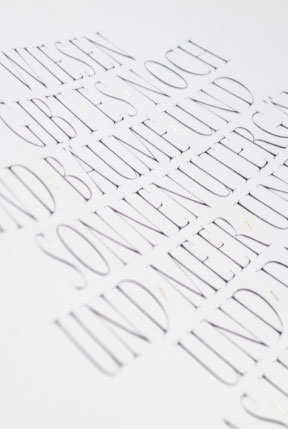 WIESEN
GIBT ES NOCH
ND BÄUME UND
SONNENUTERGÄ
UND MEER UN
UND